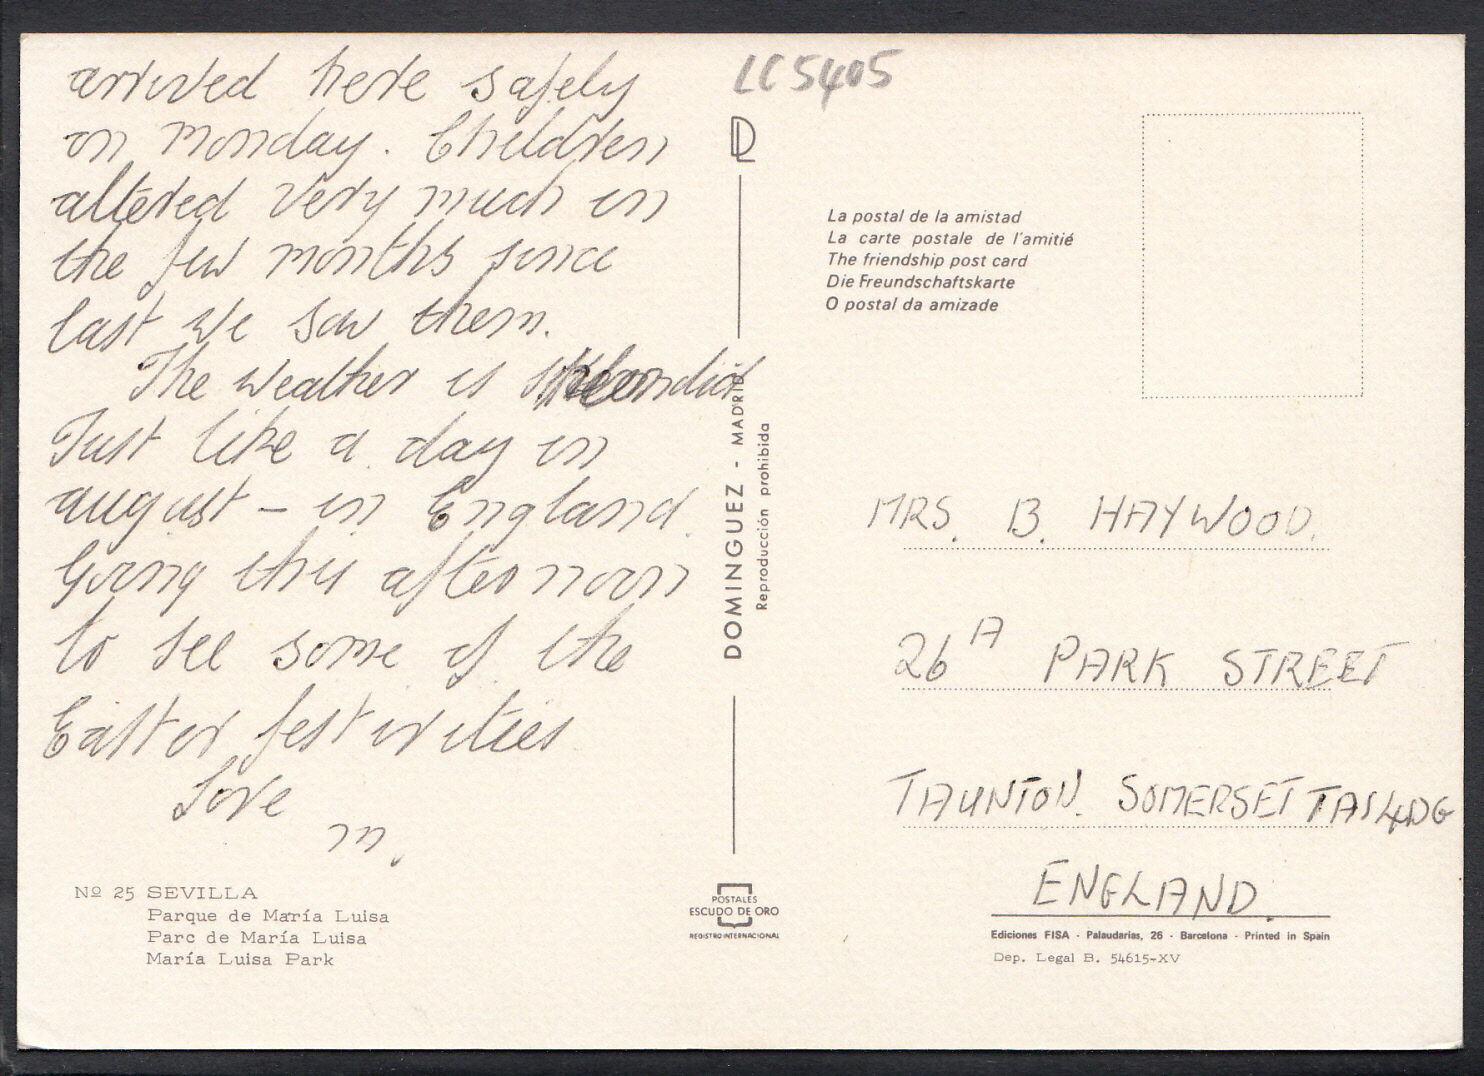 arrived here safely
on monday. Children
altered very much in
the few months since
last we saw them.
The weather is splendid
Just like a day in
august – in England.
Going this afternoon
to see some of the
Easter festivities
Love
m.
Nº 25 SEVILLA
Parque de María Luisa
Parc de María Luisa
María Luisa Park
LC5405
DL
DOMINGUEZ - MADRID
Reproducción prohibida
POSTALES
ESCUDO DE ORO
REGISTRO INTERNACIONAL
La postal de la amistad
La carte postale de l'amitié
The friendship post card
Die Freundschaftskarte
O postal da amizade
MRS. B. HAYWOOD.
26 A PARK STREET
TAUNTON. SOMERSET TA14DG
ENGLAND.
Ediciones FISA - Palaudarias, 26 - Barcelona - Printed in Spain
Dep. Legal B. 54615-XV